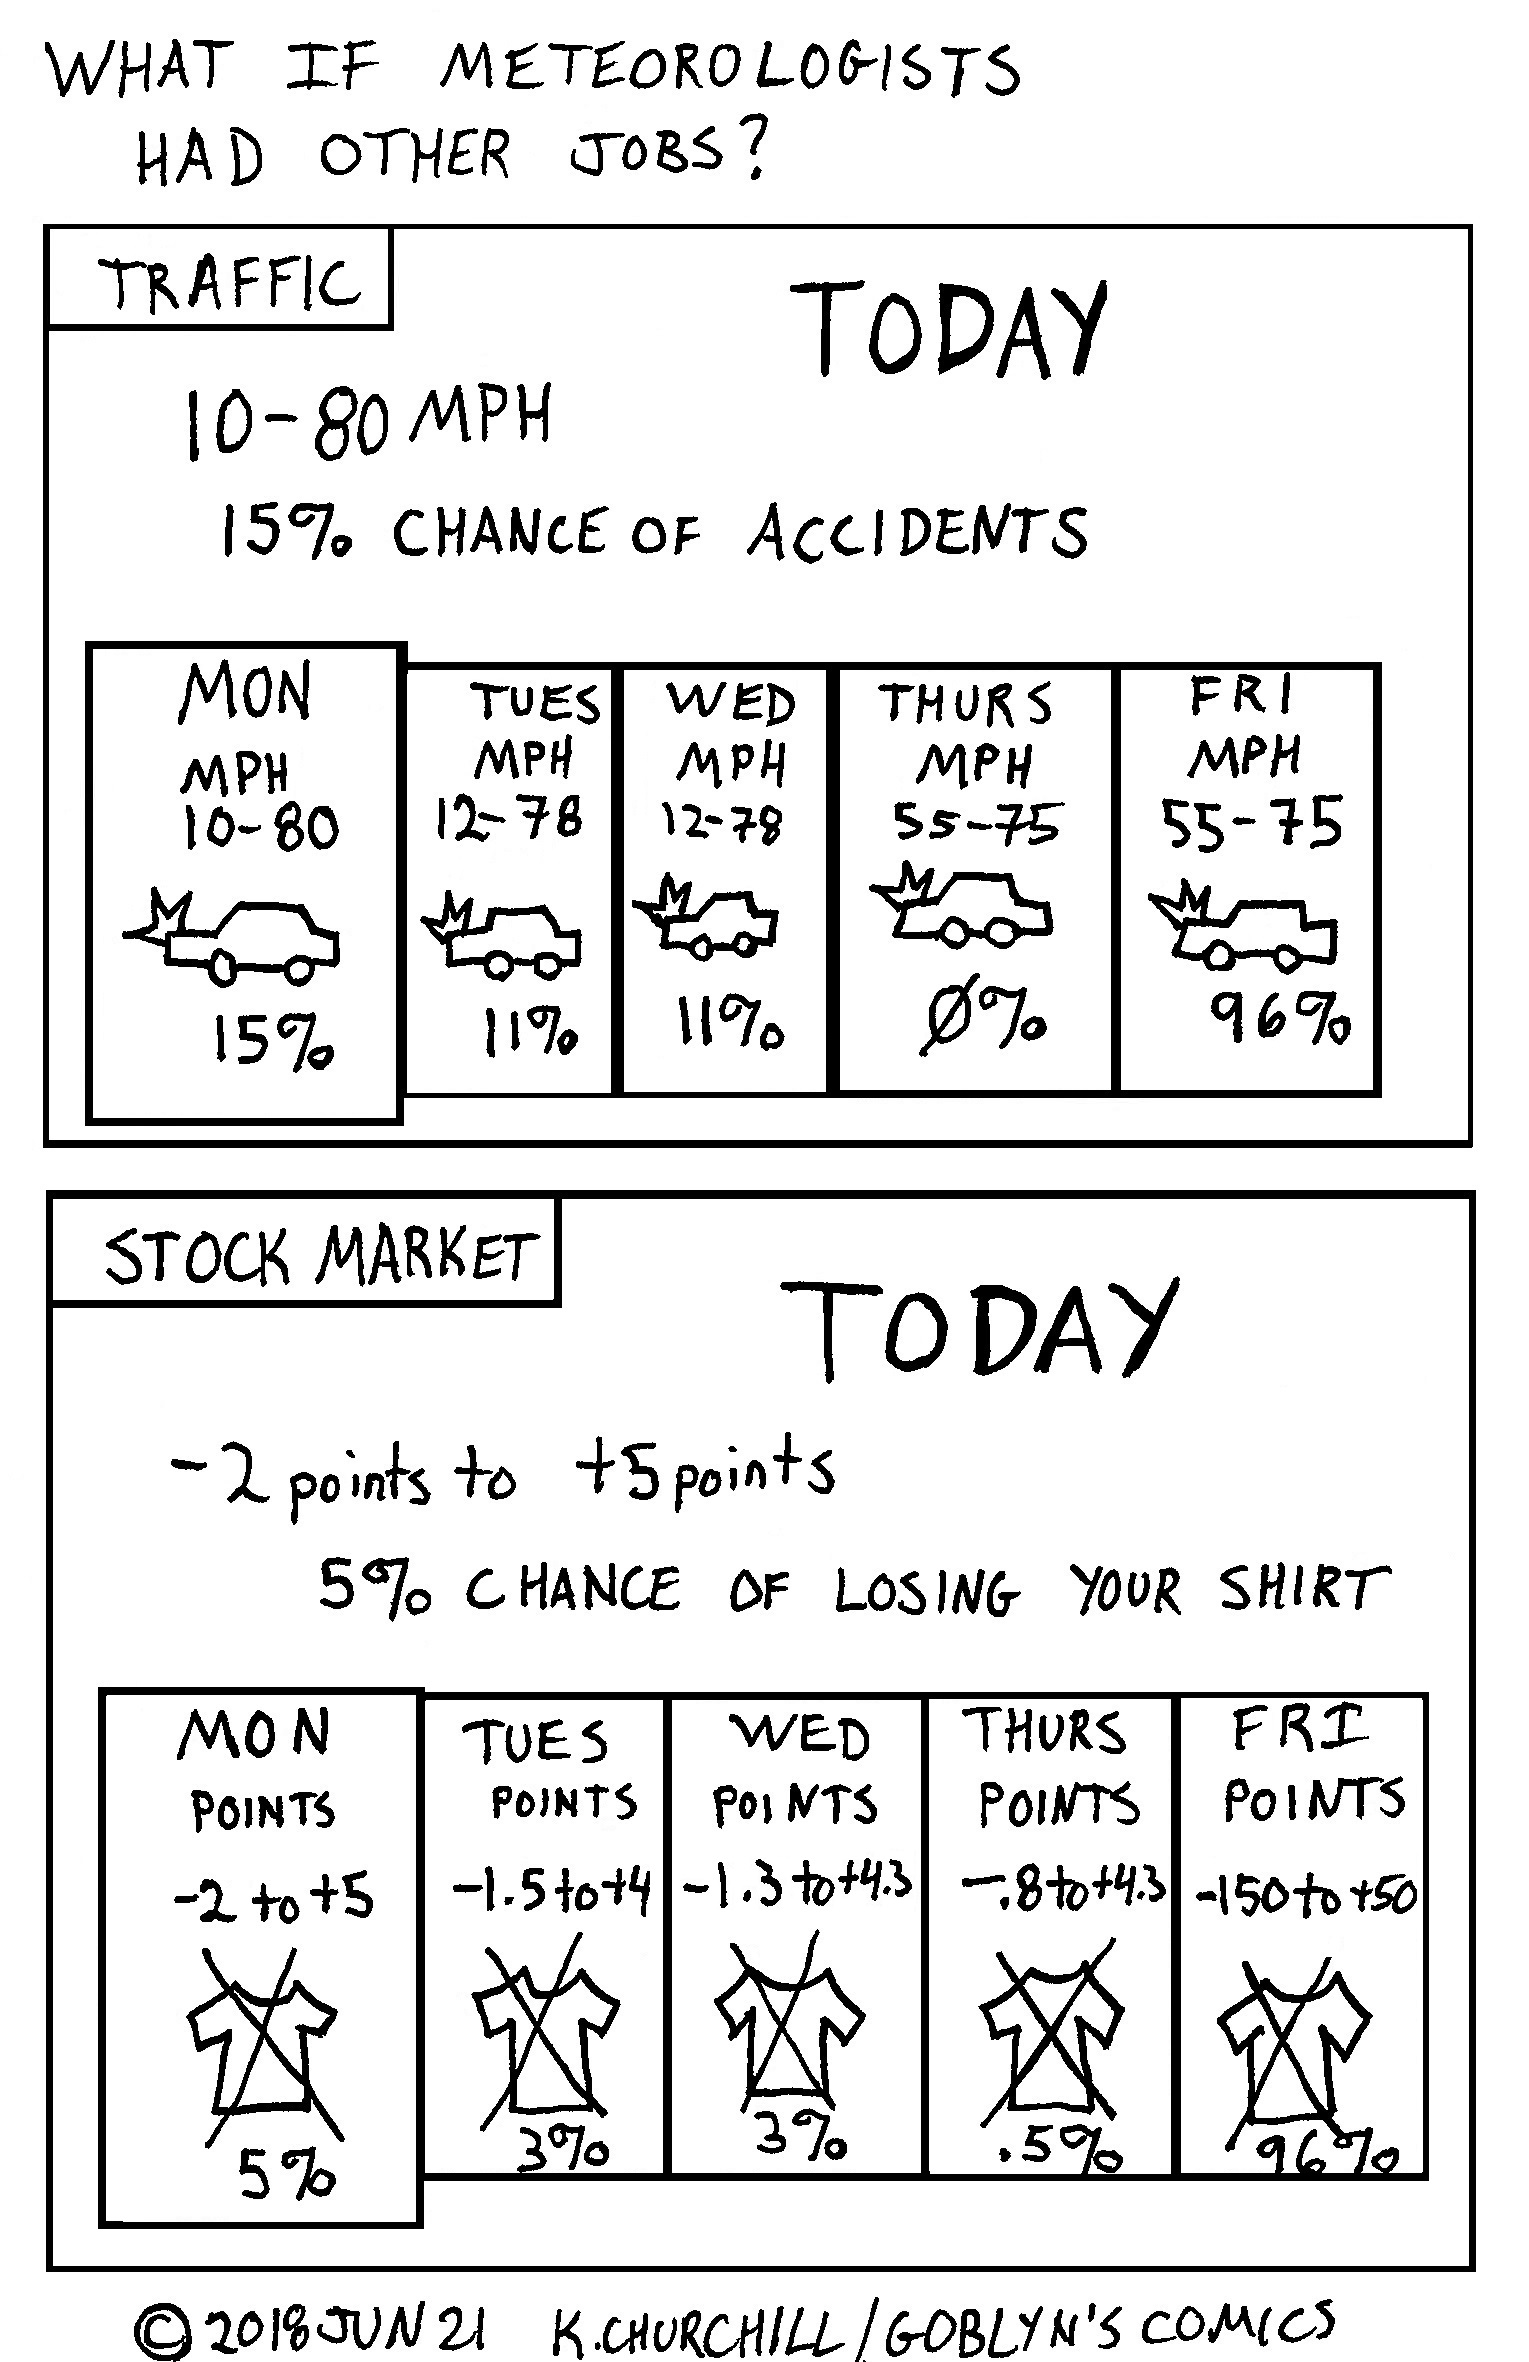 WHAT IF METEOROLOGISTS
HAD OTHER JOBS?
TRAFFIC
TODAY
10-80 MPH
15% CHANCE OF ACCIDENTS
MON
MPH
10-80
15%
TUES
MPH
12-78
11%
WED
MPH
12-78
11%
THURS
MPH
55-75
Ø%
FRI
MPH
55-75
96%
STOCK MARKET
TODAY
-2 points to +5 points
5% CHANCE OF LOSING YOUR SHIRT
MON
POINTS
-2 to +5
5%
TUES
POINTS
-1.5 to +4
3%
WED
POINTS
-1.3 to +4.3
3%
THURS
POINTS
-.8 to +4.3
.5%
FRI
POINTS
-150 to +50
96%
© 2018 JUN 21 K.CHURCHILL/GOBLYN'S COMICS